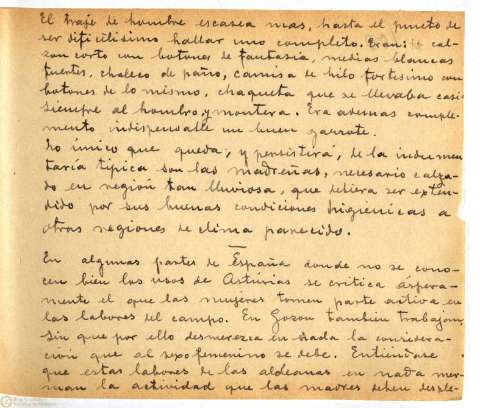 El traje de hombre escasea mas, hasta el punto de
ser dificilisimo hallar uno completo. Eran: cal-
zon corto con botones de fantasia, medias blancas
fuertes, chaleco de paño, camisa de hilo fortisimo con
botones de lo mismo, chaqueta que se llevaba casi
siempre al hombro, y montera. Era ademas comple-
mento indispensable un buen garrote.
Lo único que queda, y persistirá, de la indumen-
taría típica son las madreñas, necesario calza-
do en región tan lluviosa, que debiera ser exten-
dido por sus buenas condiciones higiénicas a
otras regiones de clima parecido.
En algunas partes de España donde no se cono-
cen bien los usos de Asturias se critica áspera-
mente el que las mujeres tomen parte activa en
las labores del campo. En Gozon también trabajan,
sin que por ello desmerezca en nada la considera-
ción que al sexo femenino se debe. Entiéndase
que estas labores de las aldeanas en nada mer-
man la actividad que las madres deben desple-